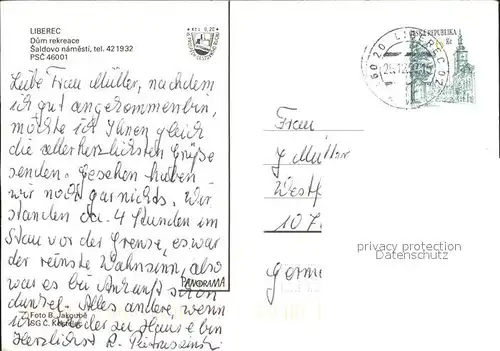 LIBEREC
Dům rekreace
Šaldovo náměstí, tel. 421932
PSČ 46001
Kčs 0,20
Liebe Frau Müller, nachdem
ich gut angekommen bin,
möchte ich Ihnen gleich
die allerherzlichsten Grüße
senden. Gesehen haben
wir noch gar nichts. Wir
standen ca. 4 Stunden im
Stau vor der Grenze, es war
der reinste Wahnsinn, also
war es bei Ankunft schon
dunkel. Alles andere, wenn
ich wieder zu Hause bin
Herzlichst R.
Foto B. Jakoubě
PANORAMA
LIBEREC 02
ČESKÁ REPUBLIKA
Frau
J Müller
Westf
107
Germ
privacy protection
Datenschutz